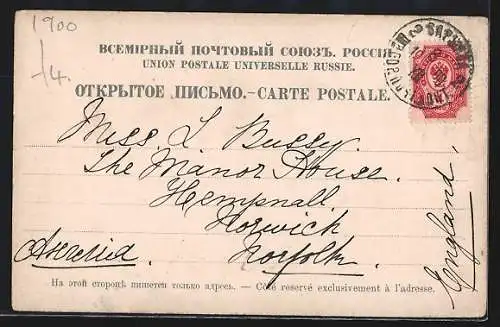 1900
/4.
ВСЕМІРНЫЙ ПОЧТОВЫЙ СОЮЗЪ. РОССІЯ
UNION POSTALE UNIVERSELLE RUSSIE.
ОТКРЫТОЕ ПИСЬМО.-CARTE POSTALE.
Miss L Bussy.
The Manor House.
Hempnall
Norwich
Norfolk
Англія
England
На этой сторонѣ пишется только адресъ. — Côté reservé exclusivement à l'adresse.